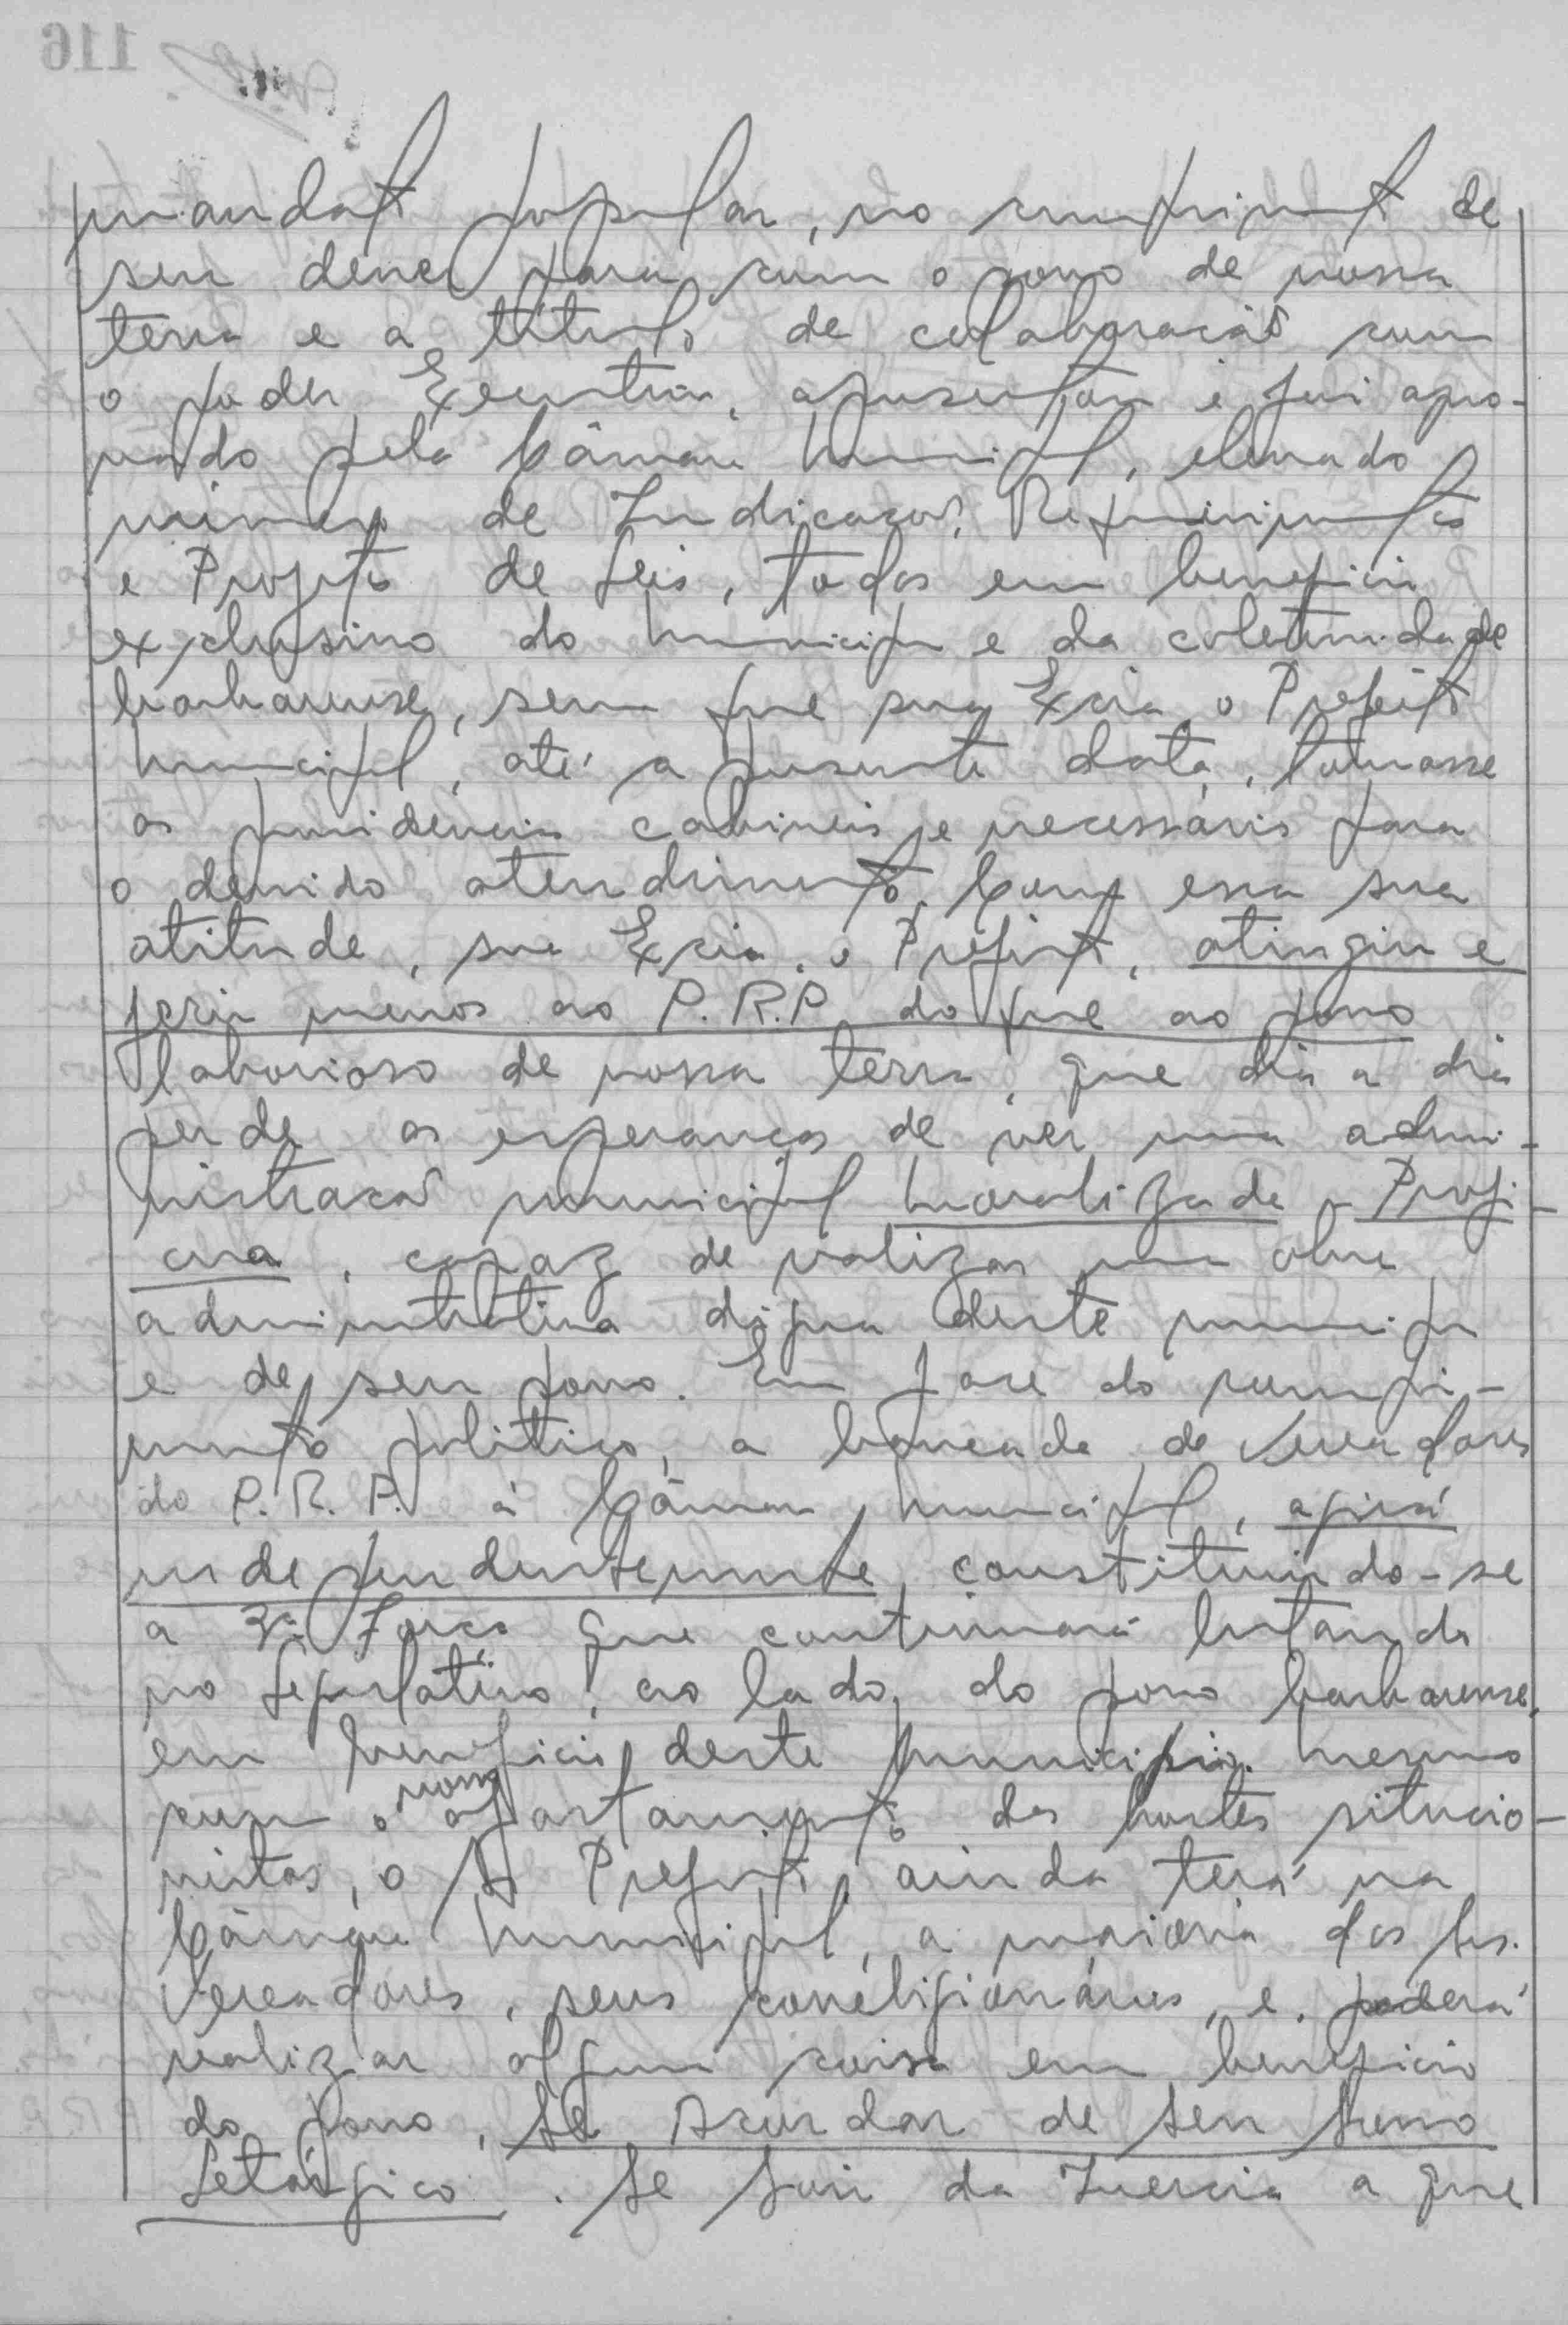 mandato popular, no cumprimento de
seu dever para com o povo de nossa
terra e a titulo de colaboração com
o poder Executivo, apresentou e foi apro-
vado pela Câmara Municipal, elevado
número de Indicações, Requerimentos
e Projetos de Leis, todos em beneficio
exclusivo do municipio e da coletividade
barbarense, sem que sua Excia. o Prefeito
Municipal, até a presente data, tomasse
as providencias cabiveis e necessárias para
o devido atendimento. Com essa sua
atitude, sua Excia. o Prefeito, atingiu e
feriu menos ao P.R.P. do que ao povo
laborioso de nossa terra, que dia a dia
perde as esperanças de ver uma admi-
nistração municipal moralizada e Profi-
cua, capaz de realizar uma obra
administrativa digna deste municipio
e de seu povo. Em face do rompi-
mento politico, a bancada de Vereadores
do P.R.P. à Câmara Municipal, agirá
independentemente, constituindo-se
a 3ª Força que continuará lutando
no Legislativo, ao lado do povo barbarense,
em beneficio deste Municipio. Mesmo
com o nosso afastamento das hostes situacio-
nistas, o Sr. Prefeito, ainda terá na
Câmara Municipal, a maioria dos Srs.
Vereadores, seus correligionários, e poderá
realizar alguma coisa em beneficio
do povo, se acordar de seu sono
Letárgico. Se sair da Inercia a que
116